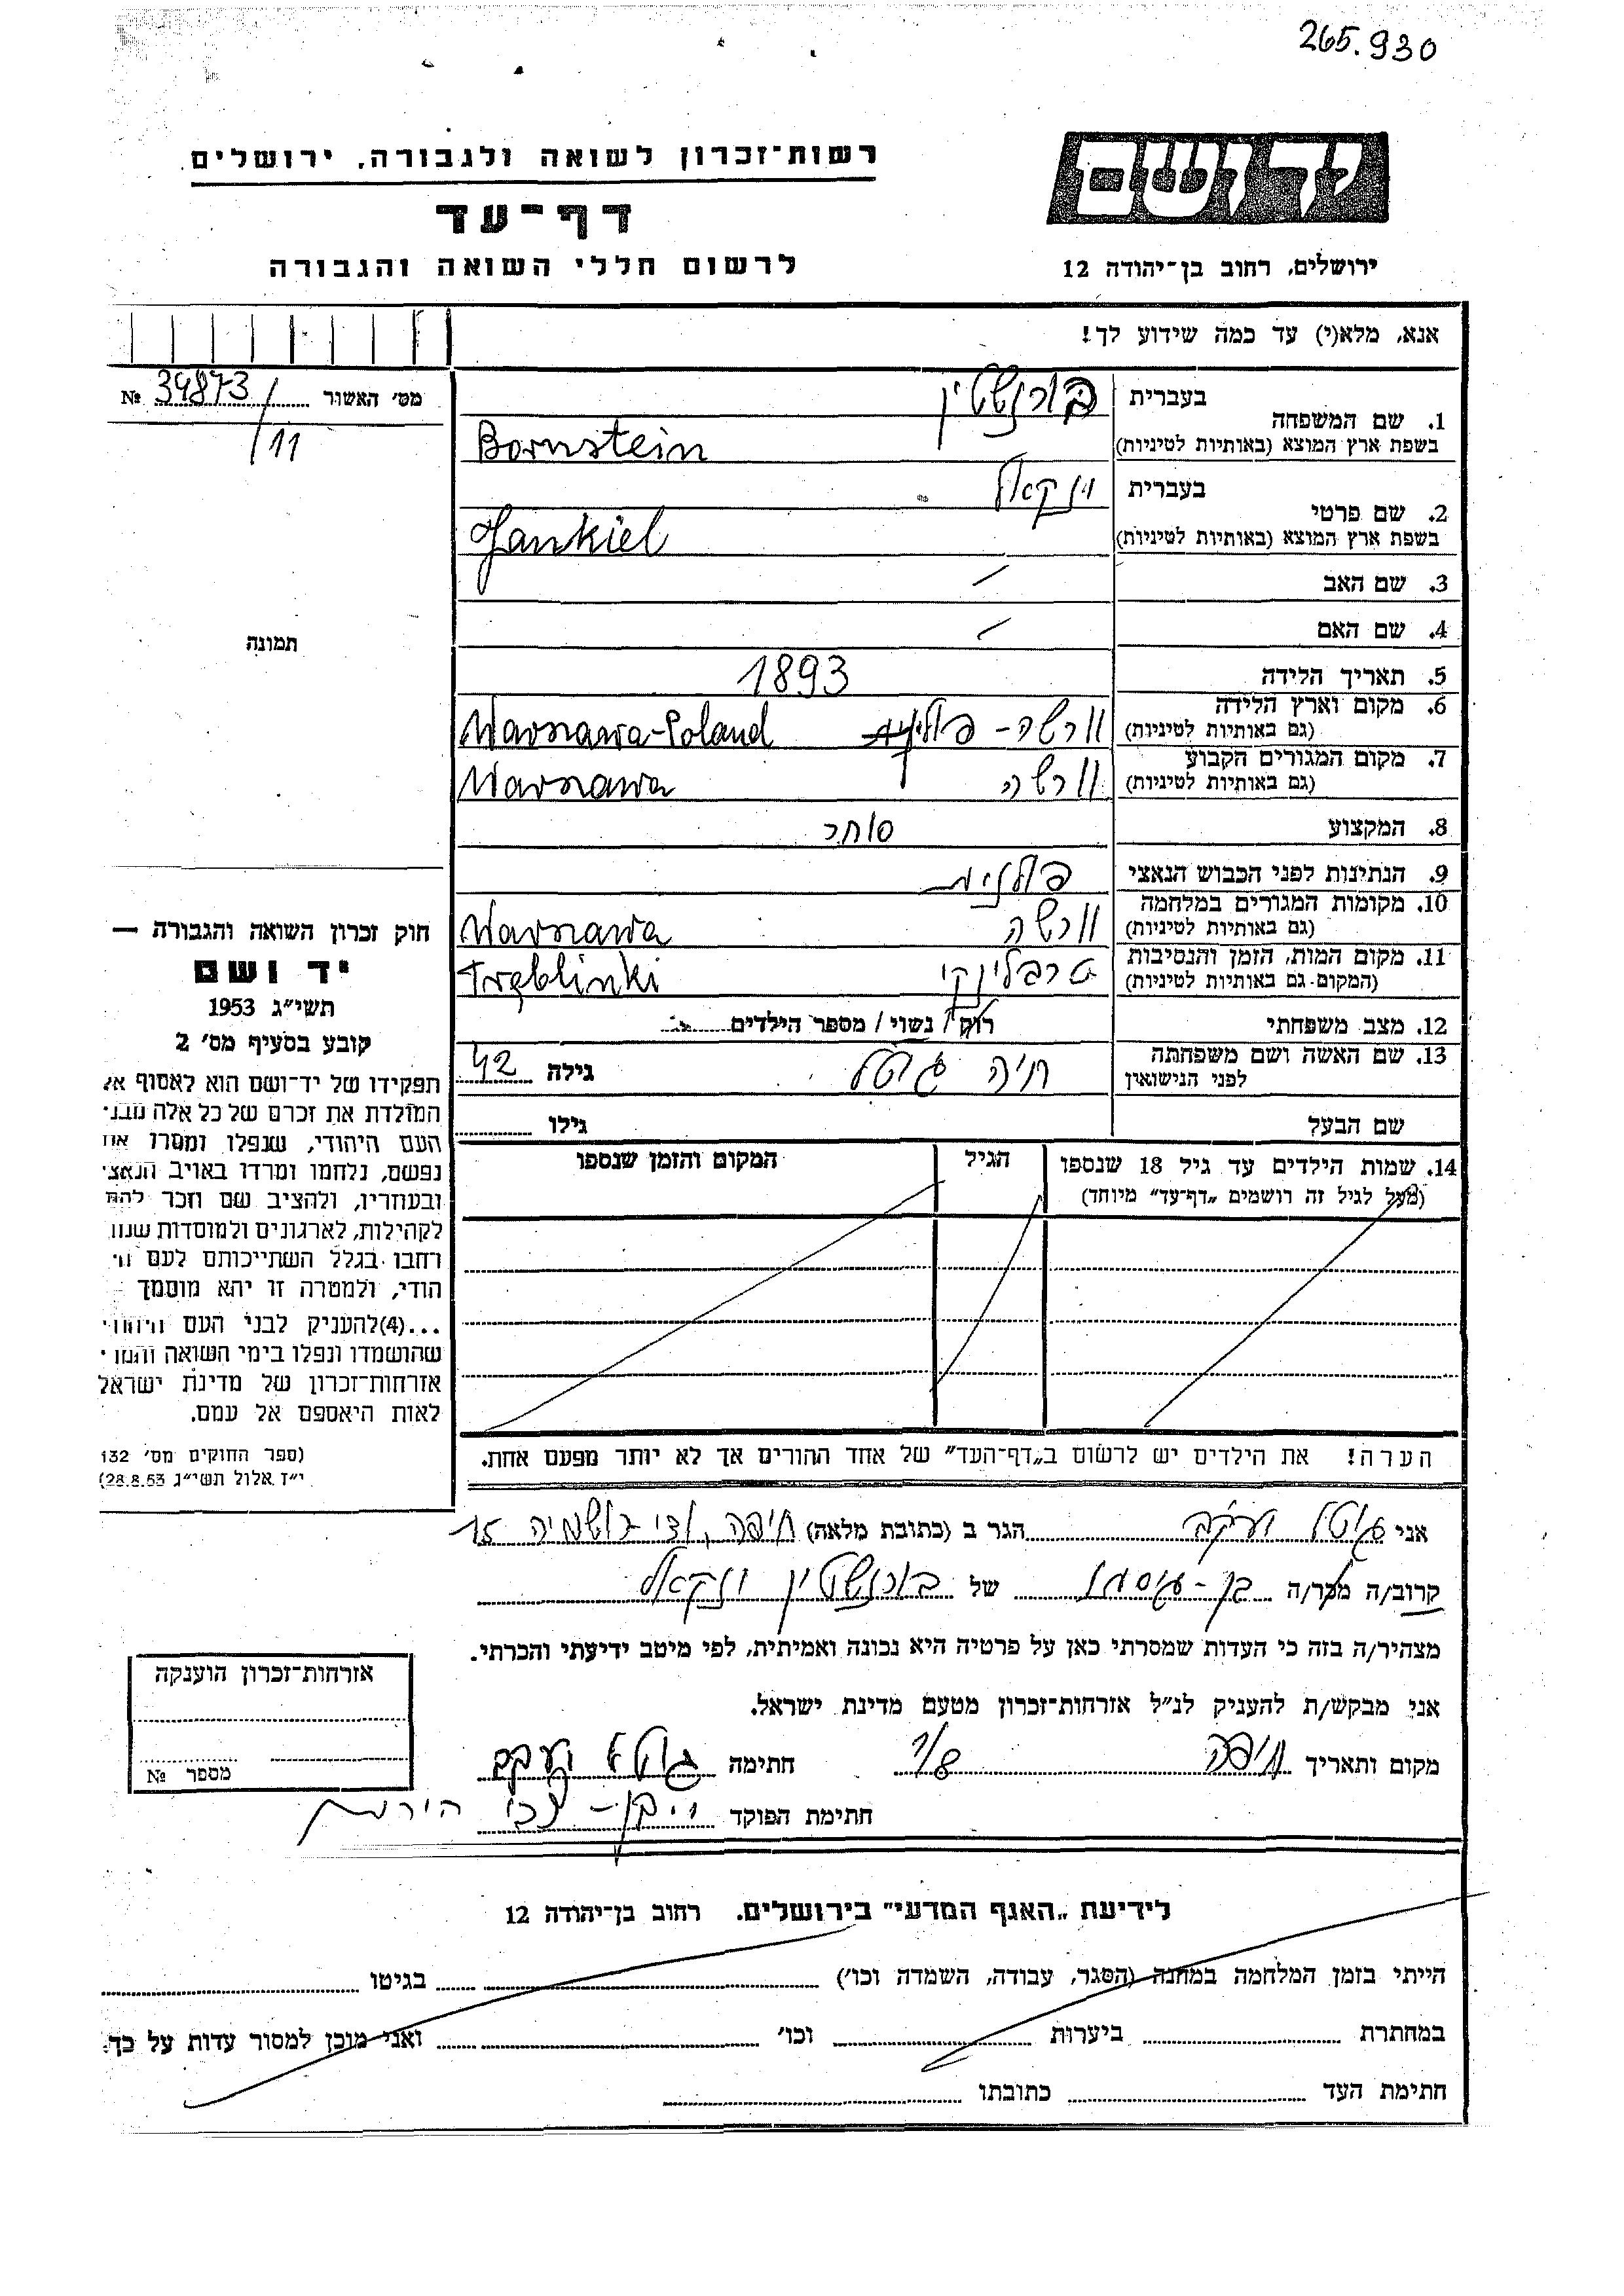 265.930
יד ושם
ירושלים, רחוב בן־יהודה 12
רשות־זכרון לשואה ולגבורה, ירושלים
דף־עד
לרשום חללי השואה והגבורה
אנא, מלא(י) עד כמה שידוע לך!
מס׳ האשור 34873 №
/11
תמונה
1. שם המשפחה
בעברית בורנשטין
בשפת ארץ המוצא (באותיות לטיניות) Bornstein
2. שם פרטי
בעברית ינקאל
בשפת ארץ המוצא (באותיות לטיניות) Jankiel
3. שם האב /
4. שם האם /
5. תאריך הלידה 1893
6. מקום וארץ הלידה
(גם באותיות לטיניות) וורשה - Warszawa-Poland
7. מקום המגורים הקבוע
(גם באותיות לטיניות) וורשה Warszawa
8. המקצוע סוחר
9. הנתינות לפני הכבוש הנאצי פולנית
10. מקומות המגורים במלחמה
(גם באותיות לטיניות) וורשה Warszawa
11. מקום המות, הזמן והנסיבות
(המקום גם באותיות לטיניות) טרבלינקי Treblinki
12. מצב משפחתי רוק/ נשוי/ מספר הילדים
13. שם האשה ושם משפחתה
לפני הנישואין חיה גוטל גילה 42
שם הבעל גילו
14. שמות הילדים עד גיל 18 שנספו הגיל המקום והזמן שנספו
(מעל לגיל זה רושמים „דף־עד" מיוחד)
הערה! את הילדים יש לרשום ב„דף־העד" של אחד ההורים אך לא יותר מפעם אחת.
חוק זכרון השואה והגבורה —
יד ושם
תשי״ג 1953
קובע בסעיף מס׳ 2
תפקידו של יד־ושם הוא לאסוף א
המולדת את זכרם של כל אלה מבני
העם היהודי, שנפלו ומסרו את
נפשם, נלחמו ומרדו באויב הנאצי
ובעוזריו, ולהציב שם וזכר להם
לקהילות, לארגונים ולמוסדות שנח
רחבו בגלל השתייכותם לעם הי
הודי, ולמטרה זו יהא מוסמך
...(4)להעניק לבני העם היהודי
שהושמדו ונפלו בימי השואה והמרי
אזרחות־זכרון של מדינת ישראל
לאות היאספם אל עמם.
(ספר החוקים מס׳ 132
י״ז אלול תשי״ג 28.8.53)
אני גוטל יעקב הגר ב (כתובת מלאה) חיפה, ואדי רושמיה 15
קרוב/ה מכר/ה של בורנשטין ינקאל
מצהיר/ה בזה כי העדות שמסרתי כאן על פרטיה היא נכונה ואמיתית, לפי מיטב ידיעתי והכרתי.
אני מבקש/ת להעניק לנ״ל אזרחות־זכרון מטעם מדינת ישראל.
מקום ותאריך חיפה חתימה גוטל יעקב
חתימת הפוקד
אזרחות־זכרון הוענקה
מספר №
לידיעת „האגף המדעי" בירושלים. רחוב בן־יהודה 12
הייתי בזמן המלחמה במחנה (הסגר, עבודה, השמדה וכו׳) בגיטו
במחתרת ביערות וכו׳ ואני מוכן למסור עדות על כך.
חתימת העד כתובתו